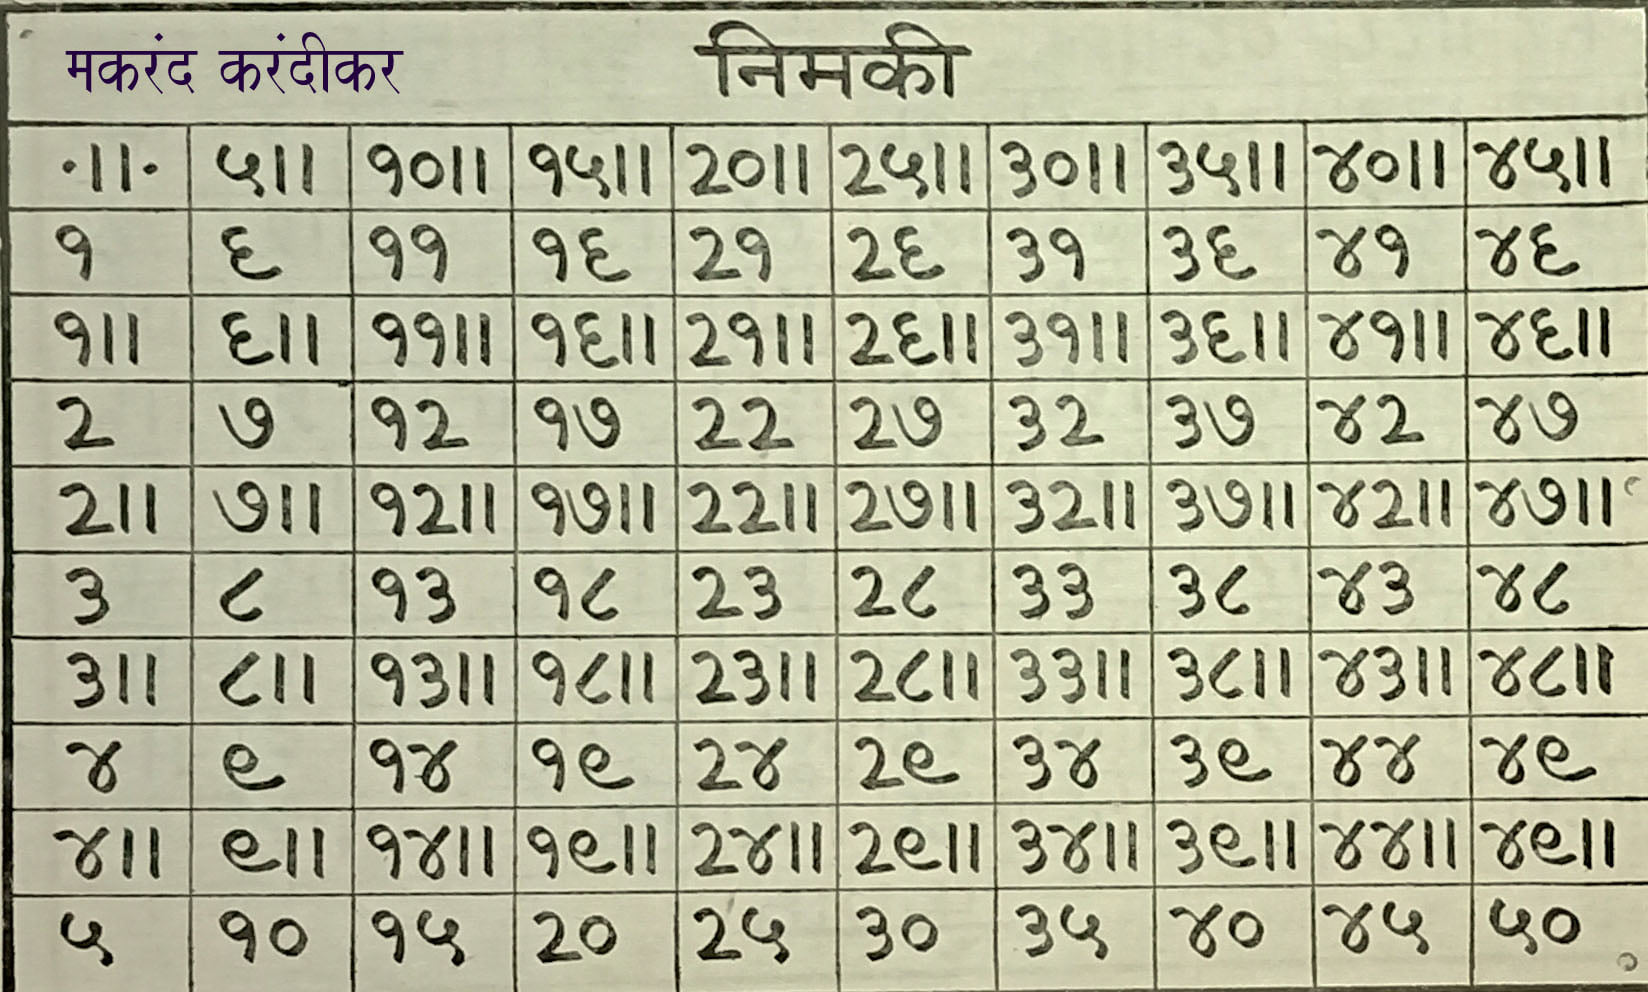 मकरंद करंदीकर निमकी
·।।· ५।। १०।। १५।। २०।। २५।। ३०।। ३५।। ४०।। ४५।।
१ ६ ११ १६ २१ २६ ३१ ३६ ४१ ४६
१।। ६।। ११।। १६।। २१।। २६।। ३१।। ३६।। ४१।। ४६।।
२ ७ १२ १७ २२ २७ ३२ ३७ ४२ ४७
२।। ७।। १२।। १७।। २२।। २७।। ३२।। ३७।। ४२।। ४७।।
३ ८ १३ १८ २३ २८ ३३ ३८ ४३ ४८
३।। ८।। १३।। १८।। २३।। २८।। ३३।। ३८।। ४३।। ४८।।
४ ९ १४ १९ २४ २९ ३४ ३९ ४४ ४९
४।। ९।। १४।। १९।। २४।। २९।। ३४।। ३९।। ४४।। ४९।।
५ १० १५ २० २५ ३० ३५ ४० ४५ ५०